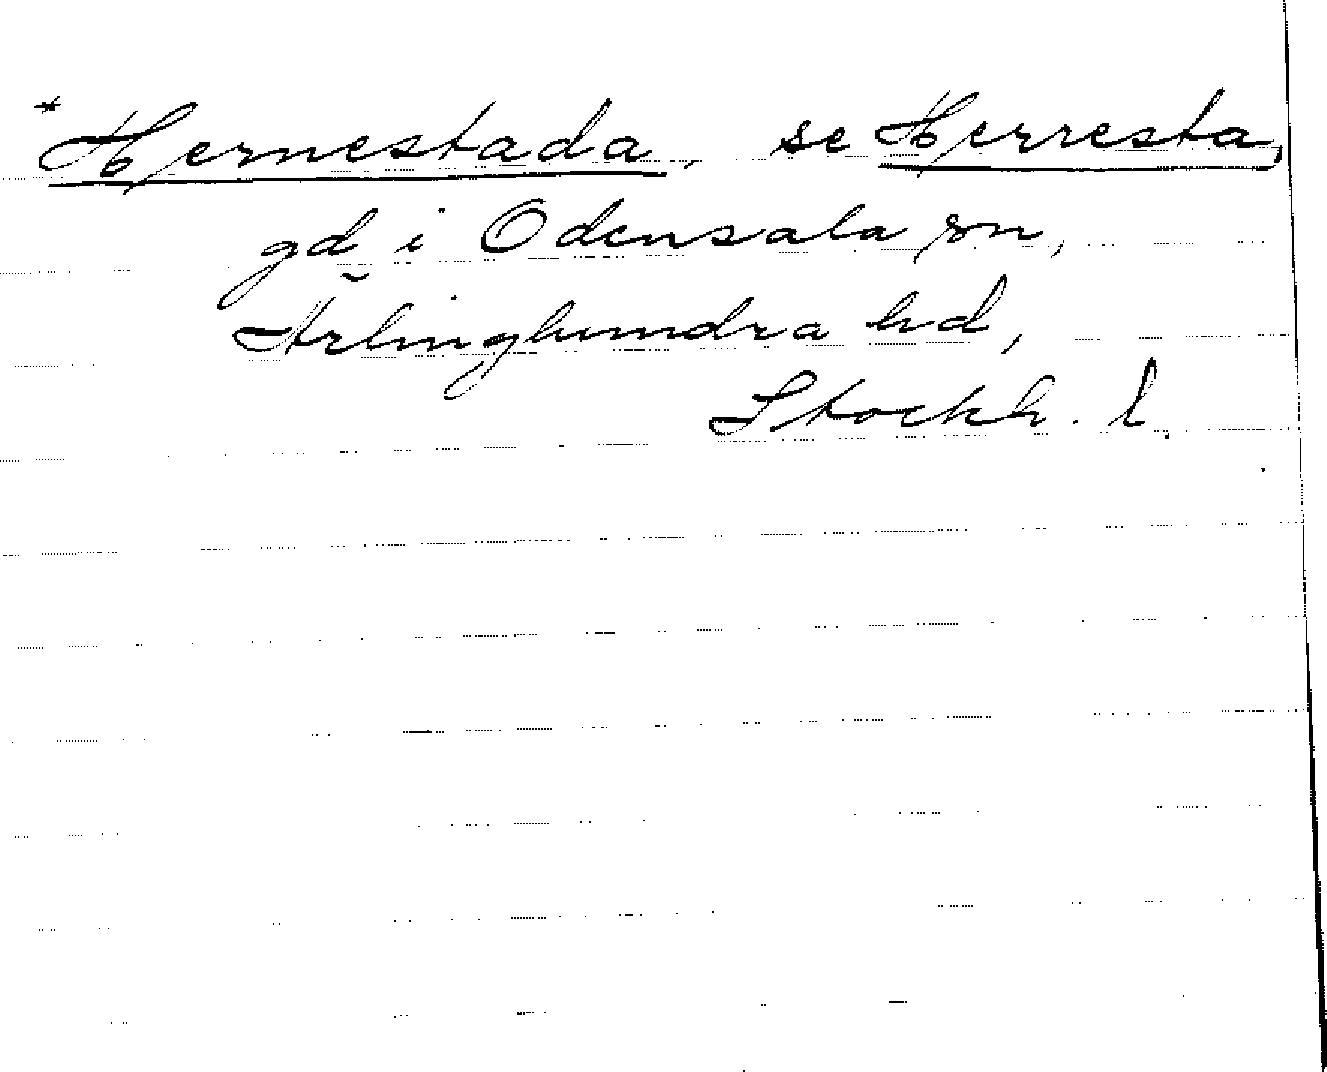 *Hernestada, se Herresta,
gd i Odensala sn,
Ärlinghundra hd,
Stockh. l.